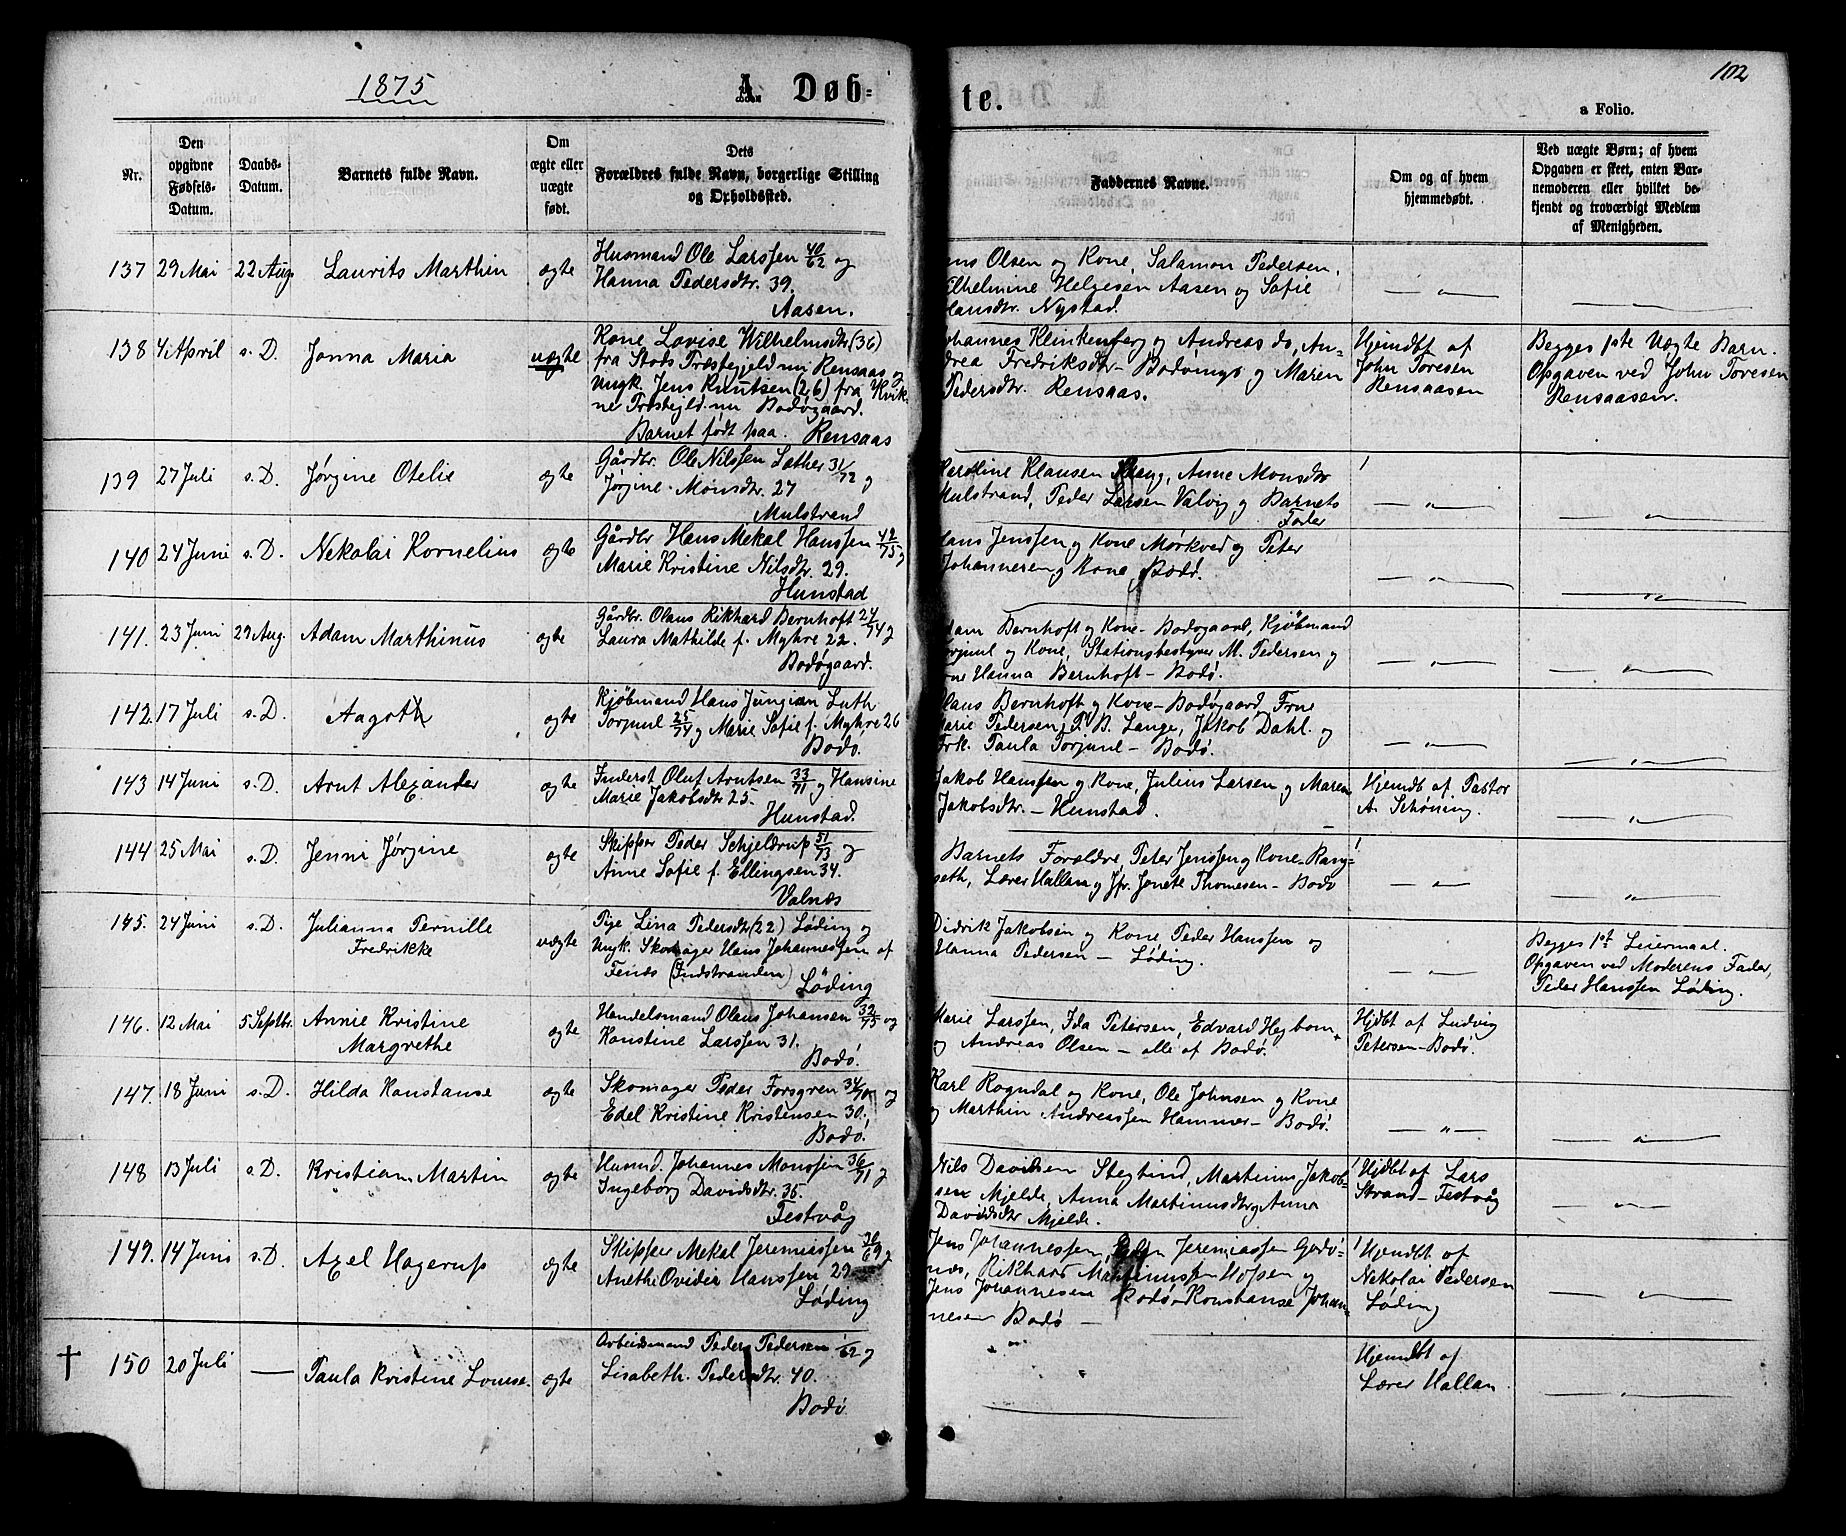 1875
A. Døb-
te.
102
a Folio.
Nr.
Den
opgivne
Fødsels-
Datum.
Daabs-
Datum.
Barnets fulde Navn.
Om
ægte eller
uægte
født.
Dets
Forældres fulde Navn, borgerlige Stilling
og Opholdssted.
Faddernes Navne.
Om og af hvem
hjemmedøbt.
Ved uægte Børn; af hvem
Opgaven er skeet, enten Bar-
nemoderen eller hvilket be-
kjendt og troværdigt Medlem
af Menigheden.
137 29 Mai 22 Aug Laurits Marthin ægte
Husmand Ole Larssen 40/62 og
Hanna Pedersdtr. 39.
Aasen.
ens Olsen og Kone, Salamon Pedersen,
ilhelmine Helgesen Aasen og Sofie
Hansdtr. Nystad.
— " —
138 4 April s. D. Jonna Maria uægte
Kone Lovise Wilhelmsdtr (36)
fra Stods Præstegjeld nu Rensaas og
Ungk. Jens Knutsen (26) fra Kvik-
ne Præstegjeld nu Bodøgaard.
Barnet født paa Rensaas
Johannes Klinkenberg og Andreas do, An-
drea Fredriksdtr - Bodøvings og Maren
Pedersdtr. Rensaas.
Hjemdbt af
John Toresen
Rensaasen
Begges 1ste Uægte Barn.
Opgaven ved John Toresen
Rensaasen.
139 27 Juli s. D. Jørgine Otelie ægte
Gårdbr. Ole Nilssen Lather 31/72 og
Jørgine Monsdtr. 27
Mulstrand
Karoline Klausen Kræg, Anne Monsdtr
Mulstrand, Peder Larsen Valvig og Barnets
Fader
— " —
140 24 Juni s. D. Nekolai Kornelius ægte
Gårdbr Hans Mekal Hanssen 42/75 og
Marie Kristine Nilsdtr. 29.
Hunstad
Hans Jenssen og Kone Mørkved og Peter
Johannesen og Kone, Bodø.
— " —
141. 23 Juni 29 Aug. Adam Marthinus ægte
Gårdbr. Olaus Rikhard Bernhoft 24/74 og
Laura Mathilde f. Myhre 22.
Bodøgaard.
dam Bernhoft og Kone - Bodøgaard, Kjöbmand
Torjuul og Kone, Stationsbestyrer M. Pedersen og
Frue Hanna Bernhoft - Bodø.
— " —
142. 17 Juli s. D. Aagoth ægte
Kjöbmand Hans Jungian Luth
Torjuul 25/74 og Marie Sofie f. Myhre 26
Bodø.
Olaus Bernhoft og Kone - Bodøgaard, Frue
Marie Pedersen, P. B. Lange, Jakob Dahl og
Frk. Paula Torjuul - Bodø.
— " —
143 14 Juni s. D. Arnt Alexander ægte
Inderst Oluf Arntsen 33/71 og Hansine
Marie Jakobsdtr 25.
Hunstad.
Jakob Hanssen og Kone, Julius Larsen og Maren
Jakobsdtr. - Hunstad.
Hjemdb af Pastor
A. Schøning.
— " —
144 25 Mai s. D. Jenni Jørgine ægte
Skipper Peder Schjeldrup 51/73 og
Anne Sofie f. Ellingsen 34.
Valnæs
Barnets Forældre, Peter Jenssen og Kone - Rang-
seth, Lærer Hallan og Jfr. Jonete Thomesen - Bodø
— " —
145. 24 Juni s. D. Julianna Pernille
Fredrikke uægte
Pige Lina Pedersdtr (22) Løding og
Ungk. Skomager Hans Johannessen af
Fenæs (Indstranden)
Löding
Didrik Jakobsen og Kone Peder Hanssen og
Hanna Pedersen - Løding.
— " —
Begges 1st Leiermaal.
Opgaven ved Moderens Fader,
Peder Hanssen Løding.
146. 12 Mai 5 Septbr. Annie Kristine
Margrethe ægte
Handelsmand Olaus Johansen 32/75 og
Konstine Larssen 31.
Bodø.
Marie Larssen, Ida Petersen, Edvard Hegbom
og Andreas Olsen - alle af Bodø.
Hjdbt af Ludvig
Petersen - Bodø.
147. 18 Juni s. D. Hilda Konstanse ægte
Skomager Peder Forsgren 34/70 og
Edel Kristine Kristensen 30.
Bodø.
Karl Rogndal og Kone, Ole Johnsen og Kone
og Marthin Andreassen Hammer - Bodø.
— " —
148 13 Juli s. D. Kristian Martin ægte
Husmd. Johannes Monssen 36/71 og
Ingeborg Davidsdtr. 35.
Festvåg
Nils Davidsen Stegtind, Martinus Jakob-
sen Mjelde, Anna Martinusdtr og Anna
Davidsdtr Mjelde.
Hjdbt af Lars
Strand - Festvåg
— " —
149. 14 Juni s. D. Axel Hagerup ægte
Skipper Mekal Jeremiassen 30/69 og
Anethe Ovidie Hanssen 29
Løding
Jens Johannessen, Jeremiassen Godø-
næs, Rikhard Martinussen Hopen og
Jens Johannesen Bodø - Konstanse Johan-
nesen Bodø —
Hjemdbt af
Nekolai Pedersen
Løding
— " —
† 150 20 Juli — Paula Kristine Louise. ægte
Arbeidsmand Peder Pedersen /62 og
Lisabeth Pedersdtr. 40.
Bodø
Hjemdbt af
Lærer Hallan
— " —